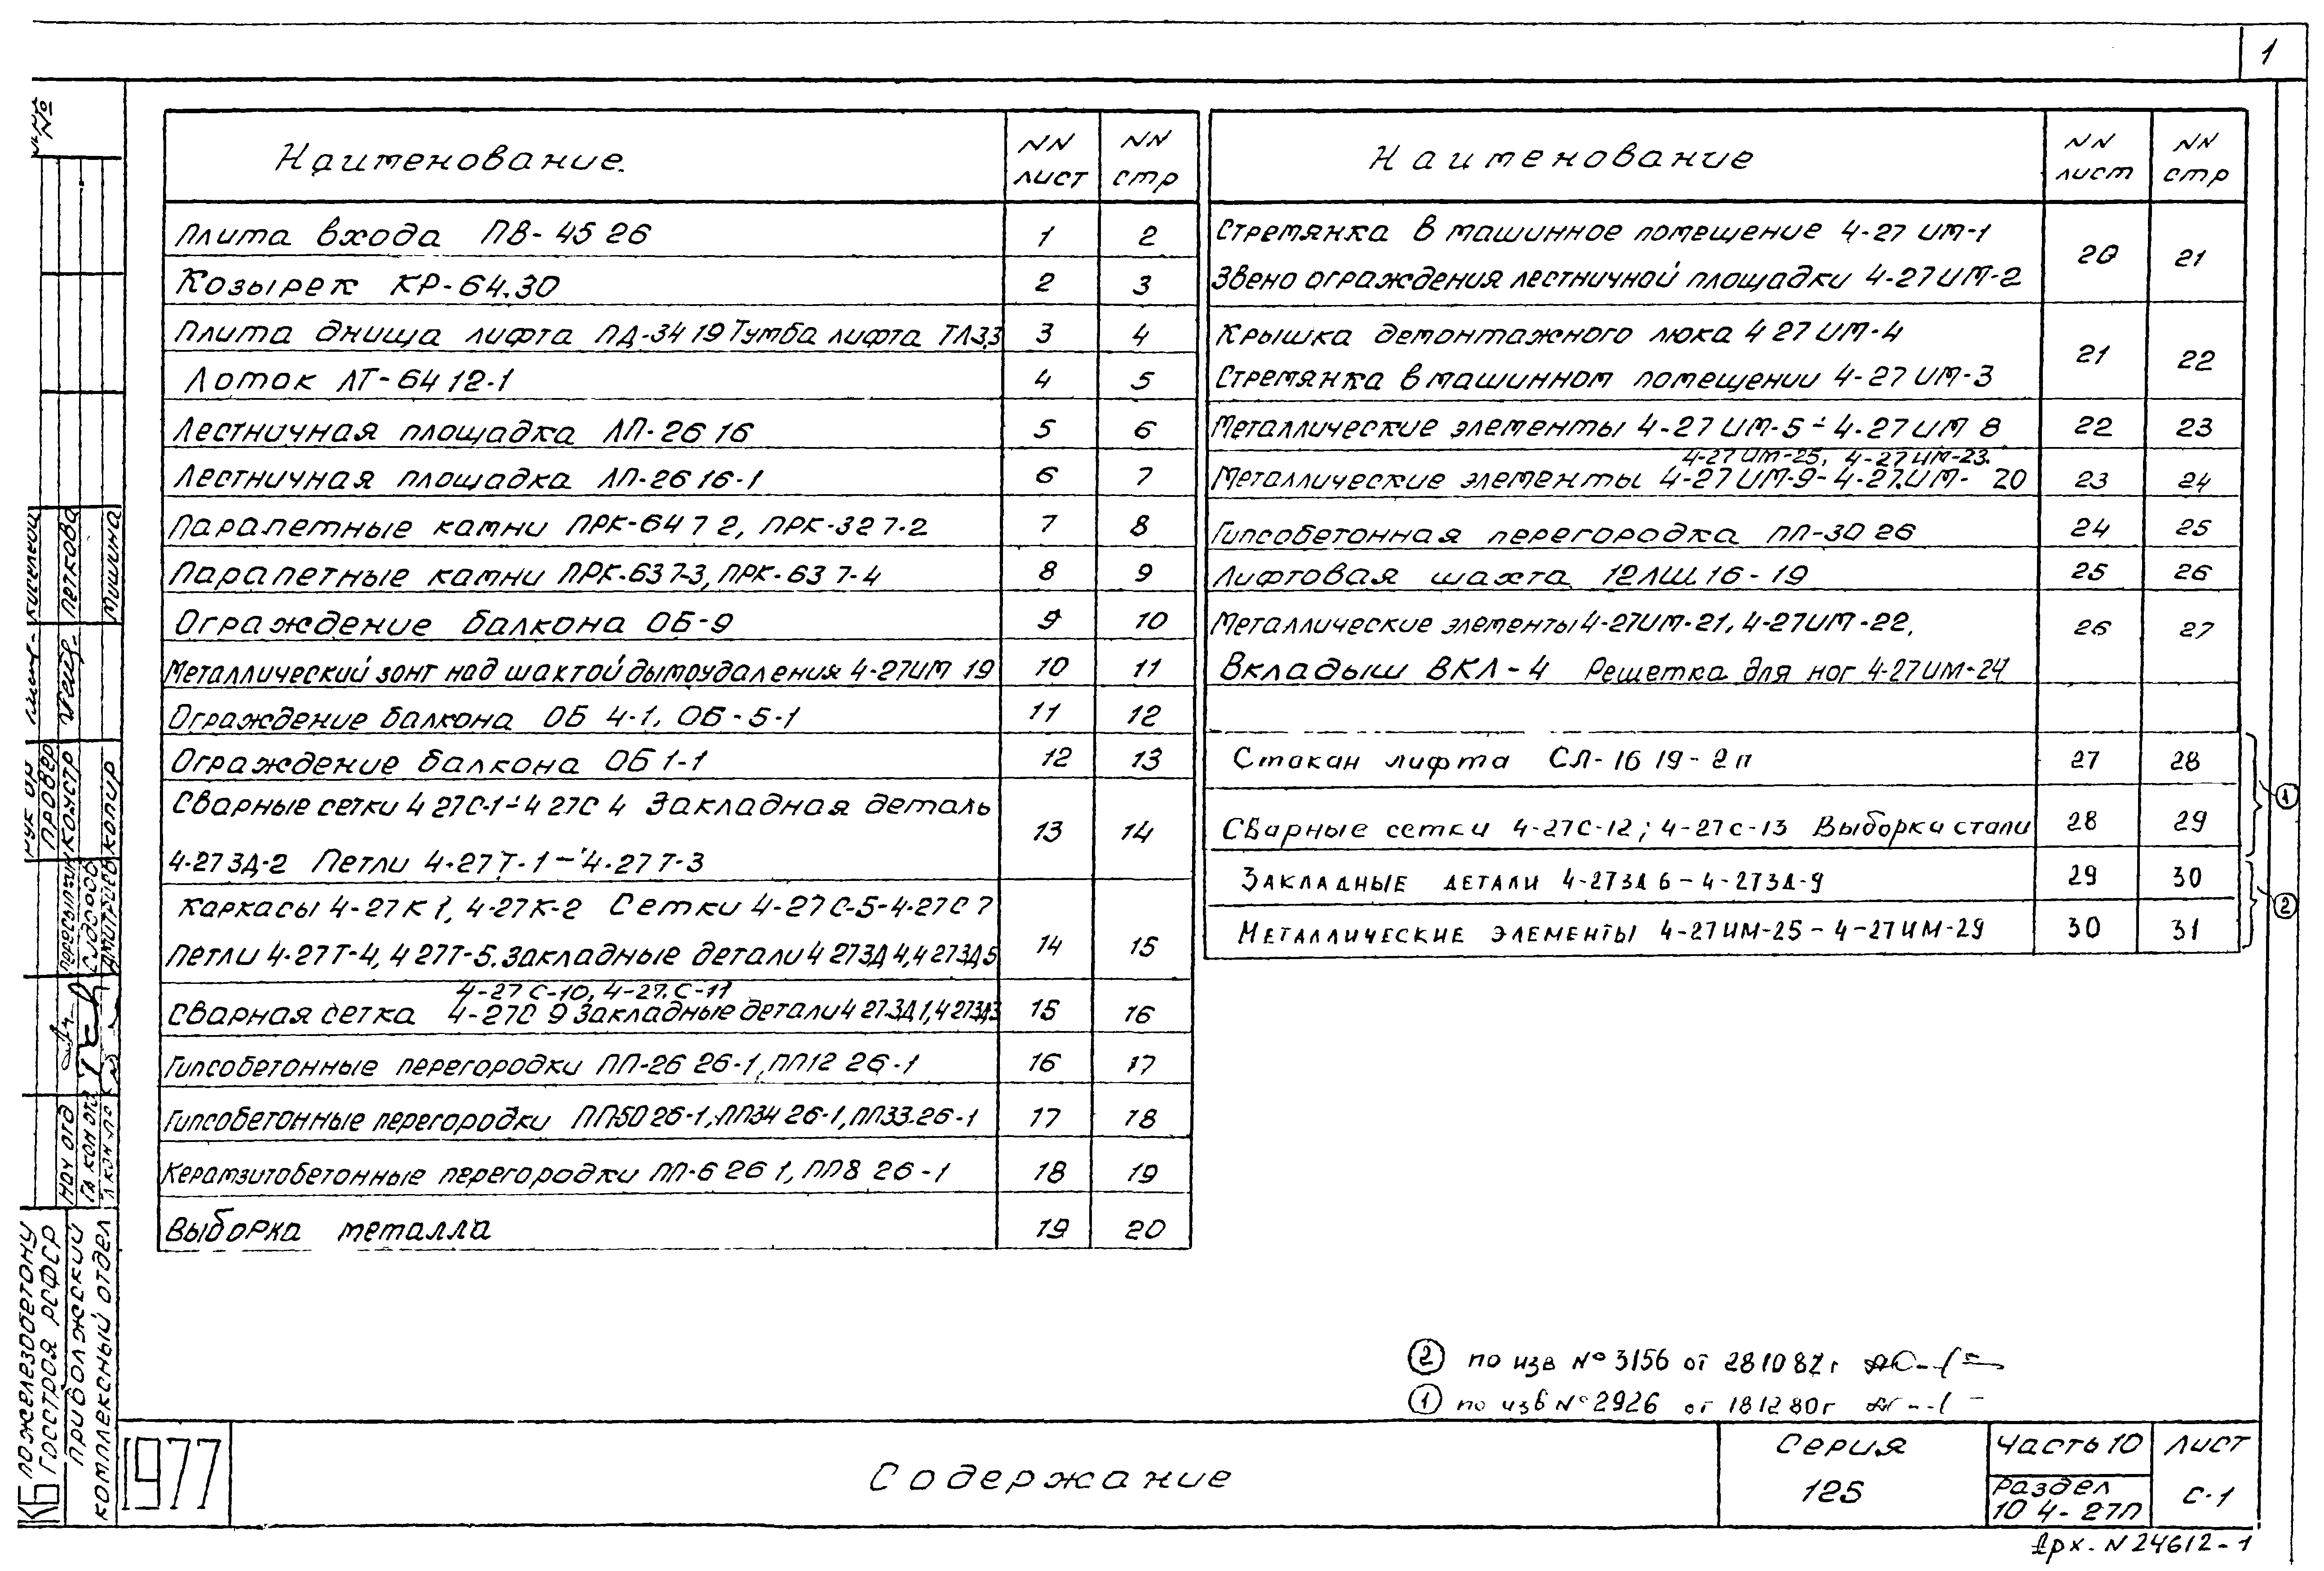 1
Наименование.
NN лист
NN стр
Плита входа ПВ-45 26 1 2
Козырек КР-64.30 2 3
Плита днища лифта ПД-34 19 Тумба лифта ТЛ3.3 3 4
Лоток ЛТ-64 12-1 4 5
Лестничная площадка ЛП-26 16 5 6
Лестничная площадка ЛП-26 16-1 6 7
Парапетные камни ПРК-64 7 2, ПРК-32 7-2 7 8
Парапетные камни ПРК-63 7-3, ПРК-63 7-4 8 9
Ограждение балкона ОБ-9 9 10
Металлический зонт над шахтой дымоудаления 4-27ИМ 19 10 11
Ограждение балкона ОБ 4-1, ОБ-5-1 11 12
Ограждение балкона ОБ 1-1 12 13
Сварные сетки 4 27С-1÷4 27С 4 Закладная деталь
4-27ЗД-2 Петли 4-27Т-1÷4-27Т-3 13 14
Каркасы 4-27К1, 4-27К-2 Сетки 4-27С-5-4-27С 7
Петли 4-27Т-4, 4 27Т-5. Закладные детали 4 27ЗД 4, 4 27ЗД 5 14 15
4-27С-10, 4-27.С-11
Сварная сетка 4-27С 9 Закладные детали 4 27.ЗД 1, 4 27ЗД3 15 16
Гипсобетонные перегородки ПП-26 26-1, ПП12 26-1 16 17
Гипсобетонные перегородки ПП50 26-1, ПП34 26-1, ПП33.26-1 17 18
Керамзитобетонные перегородки ПП-6 26 1, ПП8 26-1 18 19
Выборка металла 19 20
Наименование
NN лист
NN стр
Стремянка в машинное помещение 4-27 ИМ-1
Звено ограждения лестничной площадки 4-27ИМ-2 20 21
Крышка демонтажного люка 4 27ИМ-4
Стремянка в машинном помещении 4-27ИМ-3 21 22
Металлические элементы 4-27ИМ-5÷4-27ИМ 8 22 23
4-27ИМ-25, 4-27ИМ-23.
Металлические элементы 4-27ИМ-9-4-27.ИМ-20 23 24
Гипсобетонная перегородка ПП-30 26 24 25
Лифтовая шахта 12ЛШ 16-19 25 26
Металлические элементы 4-27ИМ-21, 4-27ИМ-22, 26 27
Вкладыш ВКЛ-4 Решетка для ног 4-27ИМ-24
Стакан лифта СЛ-16 19-2п 27 28
Сварные сетки 4-27С-12; 4-27с-13 Выборки стали 28 29
1
Закладные детали 4-27ЗД 6-4-27ЗД-9 29 30
Металлические элементы 4-27ИМ-25-4-27ИМ-29 30 31
2
2 по изв №3156 от 28 10 82г
1 по изв №2926 от 18 12 80г
1977
Содержание
Серия
125
Часть 10
Раздел
10 4-27П
Лист
С-1
Арх. N 24612-1
КБ по железобетону
Госстроя РСФСР
Приволжский
комплексный отдел
Нач отд
Гл кон отд
Пересыпкин
Судоров
Дмитриев
Провер
Констр
Копир
Петкова
Мишина